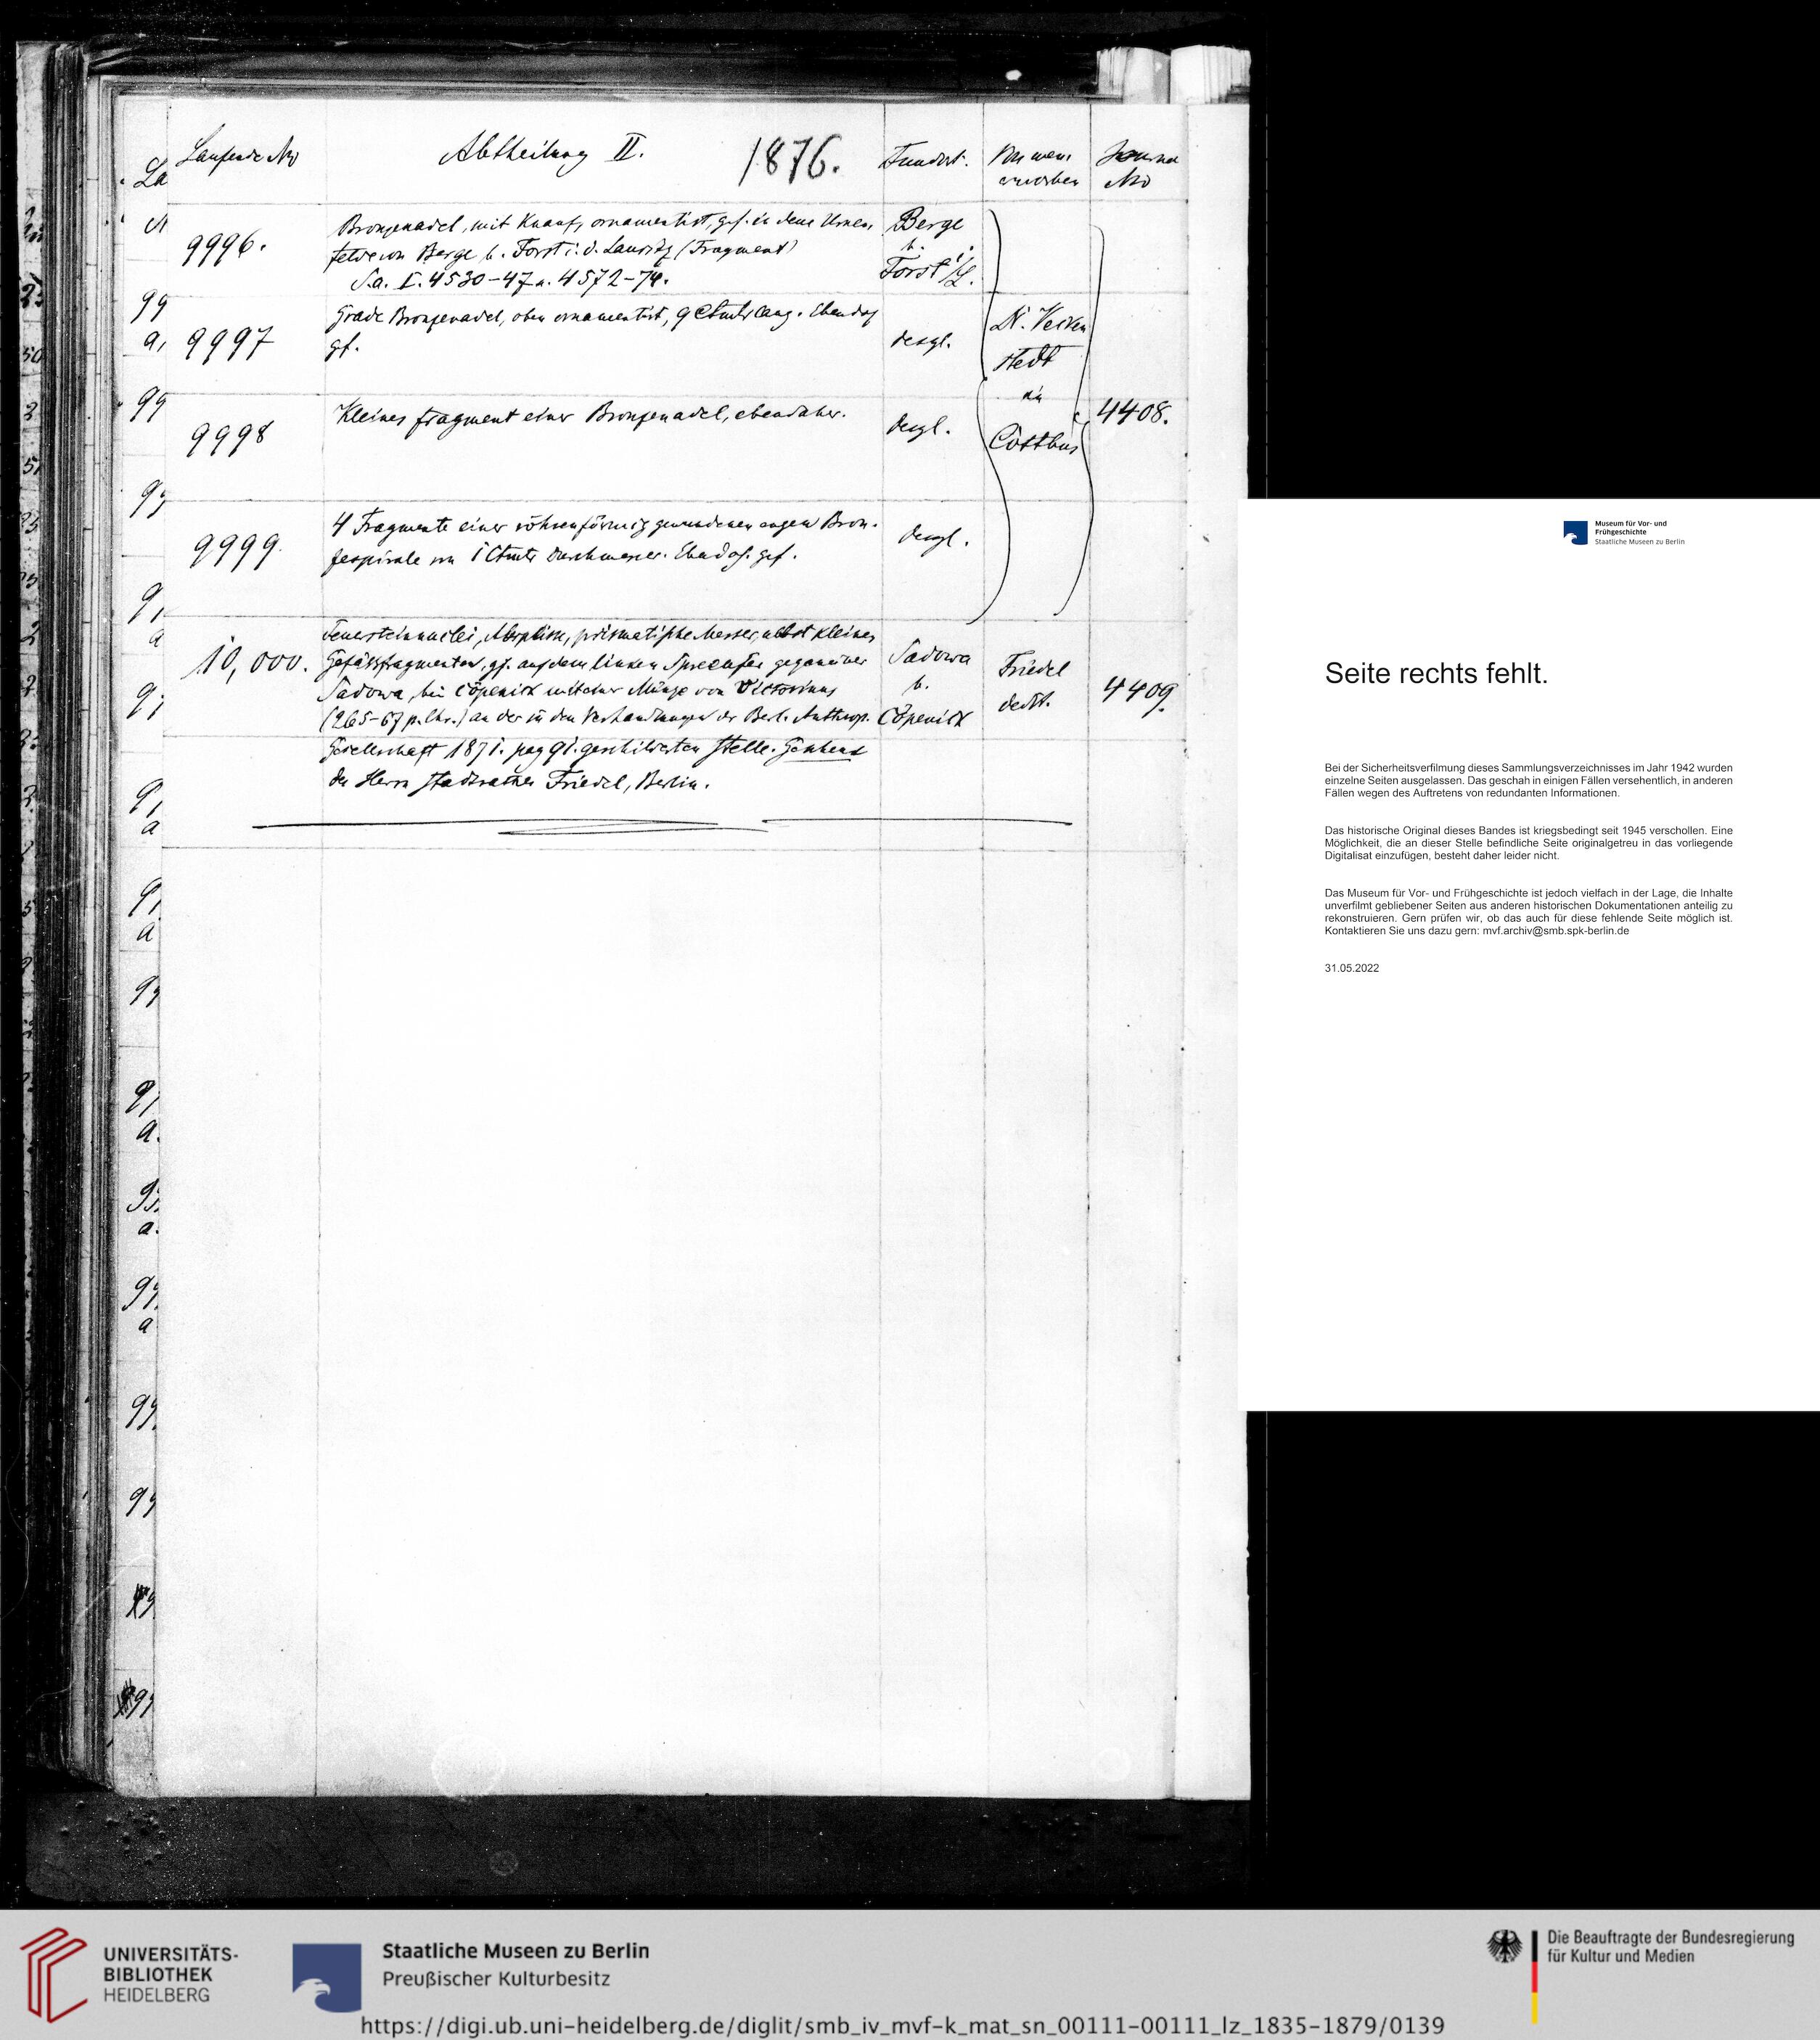 Laufende No
Abtheilung II.
1876.
Fundort.
Von wem
erworben
No
9996.
Bronzenadel, mit Knauf, ornamentirt, gef. in dem Urnen
felde von Berge b. Forst i. d. Lausitz (Fragment)
S.a. I. 4530-47 u. 4572-74.
Berge
b.
Forst i/L.
9997
Grade Bronzenadel, oben ornamentirt, 9 Ctmtr lang. Ebendas
gf.
desgl.
Dr. Vecken
stedt
in
Cottbus
4408.
9998
Kleines Fragment einer Bronzenadel, ebendaher.
desgl.
9999.
4 Fragmente einer röhrenförmig gewundenen engen Bron-
zespirale von 1 Ctmtr Durchmesser. Ebendas. gef.
desgl.
10,000.
Feuersteinnuclei, Absplisse, prismatische Messer, nebst kleinen
Gefässfragmenten, gf. auf dem linken Spreeufer gegenüber
Sadowa, bei Cöpenick mit einer Münze von Victorinus
(265-67 p. Chr.) an der in den Verhandlungen der Berl. Anthrop.
Gesellschaft 1871. pag 91. geschilderten Stelle. Geschenk
des Herrn Stadtrathes Friedel, Berlin.
Sadowa
b.
Cöpenick
Friedel
dedit.
4409.
Museum für Vor- und
Frühgeschichte
Staatliche Museen zu Berlin
Seite rechts fehlt.
Bei der Sicherheitsverfilmung dieses Sammlungsverzeichnisses im Jahr 1942 wurden
einzelne Seiten ausgelassen. Das geschah in einigen Fällen versehentlich, in anderen
Fällen wegen des Auftretens von redundanten Informationen.
Das historische Original dieses Bandes ist kriegsbedingt seit 1945 verschollen. Eine
Möglichkeit, die an dieser Stelle befindliche Seite originalgetreu in das vorliegende
Digitalisat einzufügen, besteht daher leider nicht.
Das Museum für Vor- und Frühgeschichte ist jedoch vielfach in der Lage, die Inhalte
unverfilmt gebliebener Seiten aus anderen historischen Dokumentationen anteilig zu
rekonstruieren. Gern prüfen wir, ob das auch für diese fehlende Seite möglich ist.
Kontaktieren Sie uns dazu gern: mvf.archiv@smb.spk-berlin.de
31.05.2022
UNIVERSITÄTS-
BIBLIOTHEK
HEIDELBERG
Staatliche Museen zu Berlin
Preußischer Kulturbesitz
Die Beauftragte der Bundesregierung
für Kultur und Medien
https://digi.ub.uni-heidelberg.de/diglit/smb_iv_mvf-k_mat_sn_00111-00111_lz_1835-1879/0139